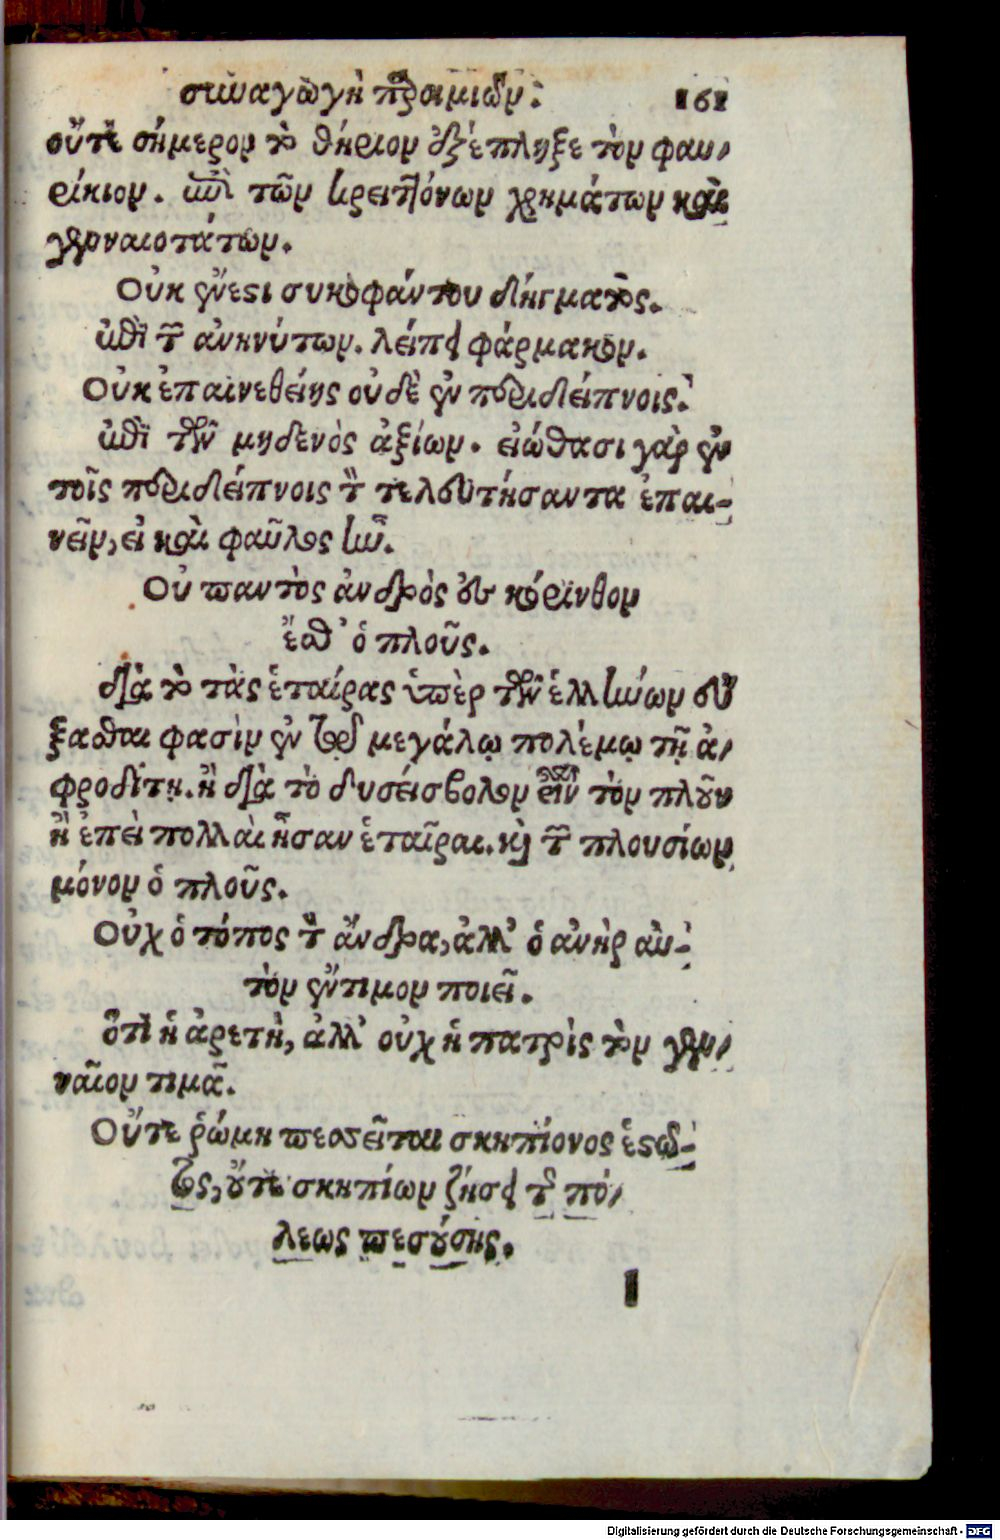 συναγωγὴ παροιμιῶν: 161
οὔτε σήμερον τὸ θηρίον ἐξέπληξε τὸν φαυ-
ρίκιον. ἐπὶ τῶν κρειττόνων χρημάτων καὶ
γενναιοτάτων.
Οὐκ ἔνεστι συκοφάντου δήγματος.
ἐπὶ τῶν ἀνηνύτων. λείπει φάρμακον.
Οὐκ ἐπαινεθείης οὐδὲ ἐν περιδείπνοις.
ἐπὶ τῶν μηδενὸς ἀξίων. εἰώθασι γὰρ ἐν
τοῖς περιδείπνοις τὸν τελευτήσαντα ἐπαι-
νεῖν, εἰ καὶ φαῦλος ἦν.
Οὐ παντὸς ἀνδρὸς ἐς κόρινθον
ἔσθ' ὁ πλοῦς.
διὰ τὸ τὰς ἑταίρας ὑπὲρ τῶν ἑλλήνων εὔ
ξασθαι φασὶν ἐν τῷ μεγάλῳ πολέμῳ τῇ ἀ-
φροδίτῃ. ἢ διὰ τὸ δυσείσβολον εἶναι τὸν πλοῦν
ἢ ἐπεὶ πολλαὶ ἦσαν ἑταῖραι. καὶ τῶν πλουσίων
μόνον ὁ πλοῦς.
Οὐχ ὁ τόπος τὸν ἄνδρα, ἀλλ' ὁ ἀνὴρ αὐ-
τὸν ἔντιμον ποιεῖ.
ὅτι ἡ ἀρετὴ, ἀλλ' οὐχ ἡ πατρὶς τὸν γεν-
ναῖον τιμᾷ.
Οὔτε ῥώμη πεσεῖται σκηπίονος ἑστῶ-
τος, οὔτε σκηπίων ζήσει τῆς πό-
λεως πεσούσης.
Digitalisierung gefördert durch die Deutsche Forschungsgemeinschaft - DFG